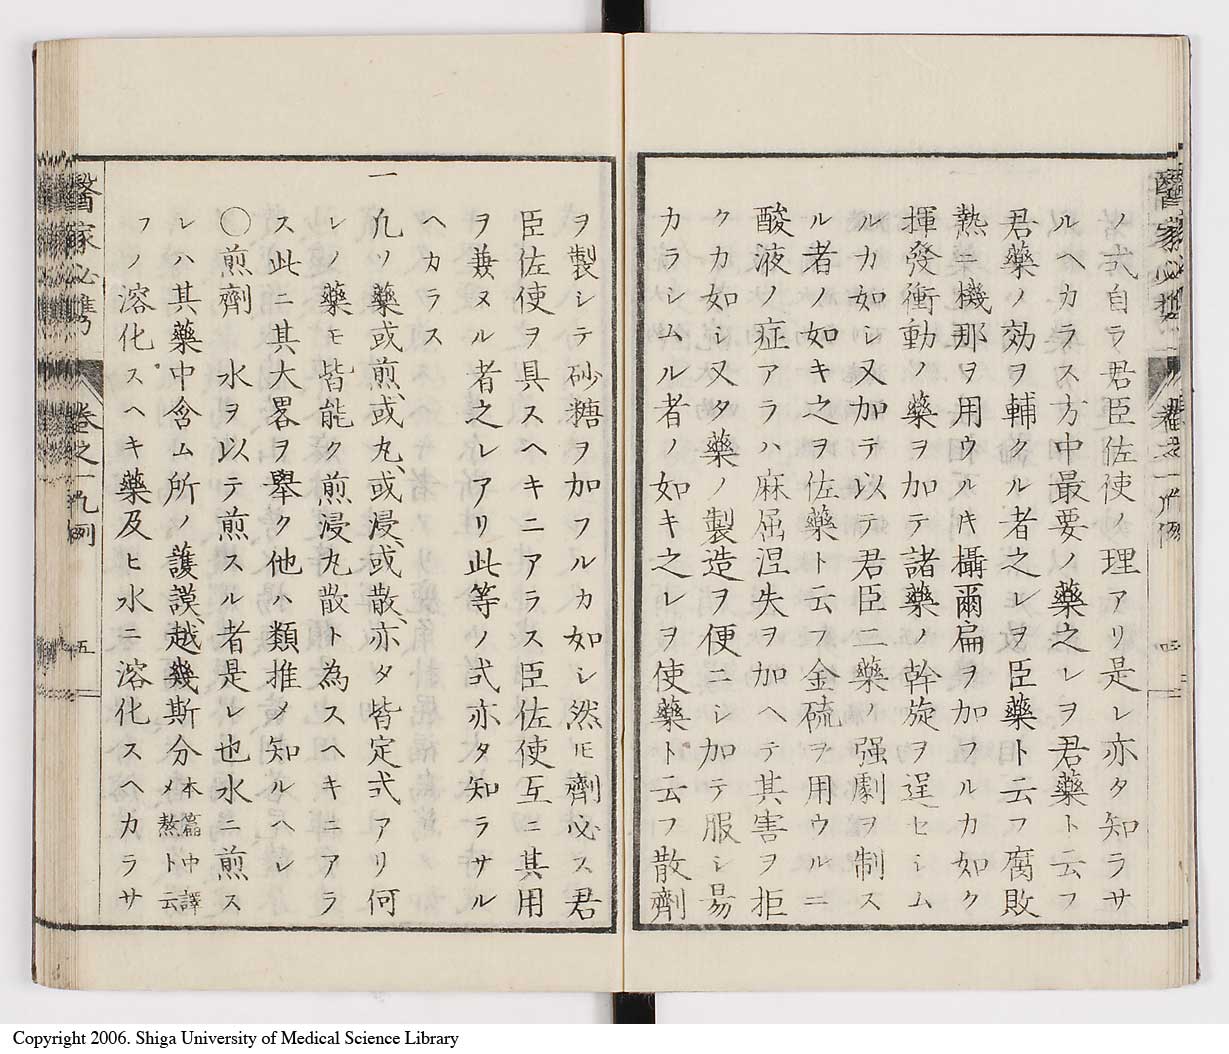 ノ式自ラ君臣佐使ノ理アリ是レ亦タ知ラサ
ルヘカラス方中最要ノ藥之レヲ君藥ト云フ
君藥ノ効ヲ輔クル者之レヲ臣藥ト云フ腐敗
熱ニ機那ヲ用ウルヰ攝爾扁ヲ加フルカ如ク
揮發衝動ノ藥ヲ加テ諸藥ノ幹旋ヲ逞セシム
ルカ如シ又加テ以テ君臣二藥ノ强劇ヲ制ス
ル者ノ如キ之ヲ佐藥ト云フ金硫ヲ用ウルニ
酸液ノ症アラハ麻屈涅失ヲ加ヘテ其害ヲ拒
クカ如シ又タ藥ノ製造ヲ便ニシ加テ服シ易
カラシムル者ノ如キ之レヲ使藥ト云フ散劑
ヲ製シテ砂糖ヲ加フルカ如シ然𪜈劑必ス君
臣佐使ヲ具スヘキニアラス臣佐使互ニ其用
ヲ兼ヌル者之レアリ此等ノ式亦タ知ラサル
ヘカラス
一 凡ソ藥或煎、或丸、或浸、或散、亦タ皆定式アリ何
レノ藥モ皆能ク煎浸丸散ト為スヘキニアラ
ス此ニ其大畧ヲ擧ク他ハ類推メ知ルヘレ
〇煎劑 水ヲ以テ煎スル者是レ也水ニ煎ス
レハ其藥中含ム所ノ護謨、越幾斯分本篇中譯メ熬ト云
フノ溶化スヘキ藥及ヒ水ニ溶化スヘカラサ
醫家必携 卷之一凡例 五